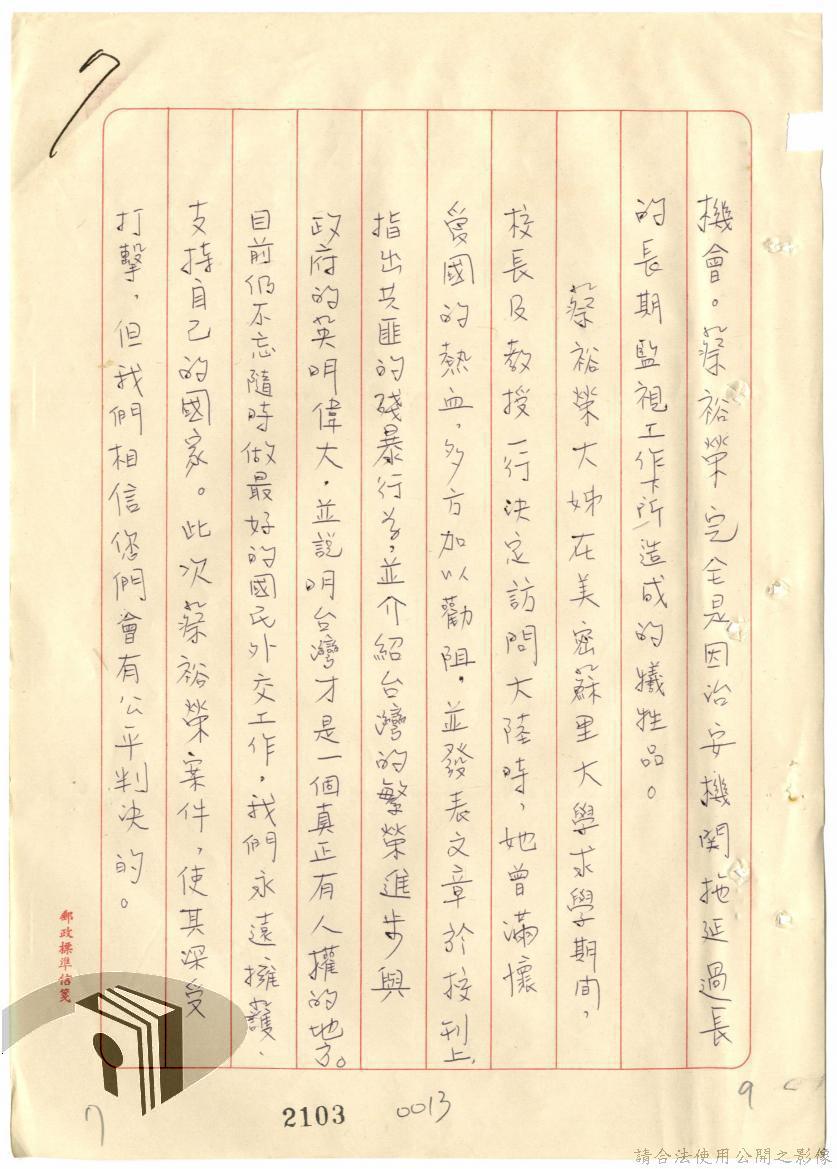 7
機會。蔡裕榮完全是因治安機関拖延過長
的長期監視工作下所造成的犧牲品。
蔡裕榮大姊在美密蘇里大學求學期間，
校長及教授一行決定訪問大陸時，她曾滿懷
愛國的熱血，多方加以勸阻，並發表文章於校刊上，
指出共匪的殘暴行為，並介紹台灣的繁榮進步與
政府的英明偉大，並說明台灣才是一個真正有人權的地方。
目前仍不忘隨時做最好的國民外交工作，我們永遠擁護、
支持自己的國家。此次蔡裕榮案件，使其深受
打擊，但我們相信您們會有公平判決的。
郵政標準信箋
7
2103
0013
9
請合法使用公開之影像